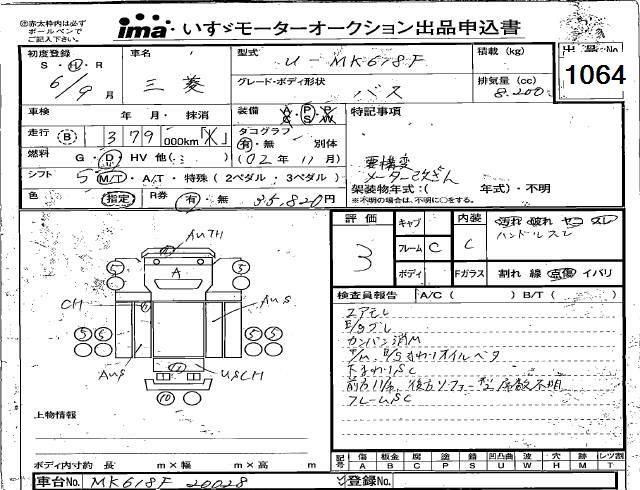 赤太枠内は必ず
ボールペンで
ご記入ください。
ima いすゞモーターオークション出品申込書
初度登録 車名 型式 積載(kg) 出品No
S・H・R 三菱 U-MK618F 1064
6/9月 グレード・ボディ形状 バス 排気量(cc) 8.200
車検 年 月・抹消 装備 A/C P/S P/W 特記事項
走行 B 379 000km タコグラフ
有・無 別体
燃料 G・D・HV 他( ) (02年11月) 要構変
メーター改ざん
シフト 5 M/T・A/T・特殊(2ペダル・3ペダル) 架装物年式:( 年式)・不明
※不明の場合は、不明に○をする。
色 指定 R券 有・無 35,820円
評価 3 キャブ 内装 C 汚れ 破れ ヤニ スレ
ハンドルスレ
フレーム C
ボディ Fガラス 割れ 線 点傷 イバリ
検査員報告 A/C( ) B/T( )
エアモレ
カンバン消M
下まわりSC
フレームSC
AUTH
A
5 5
CH AUS
5 5 5 5
AUS USCH
10
上物情報
ボディ内寸約 長 m×幅 m×高 m
記号 傷 板金 腐 塗 錆 凹凸曲 波 穴 跡 レツ割
A B C P S U W H M T
車台No. MK618F 20028 登録No.